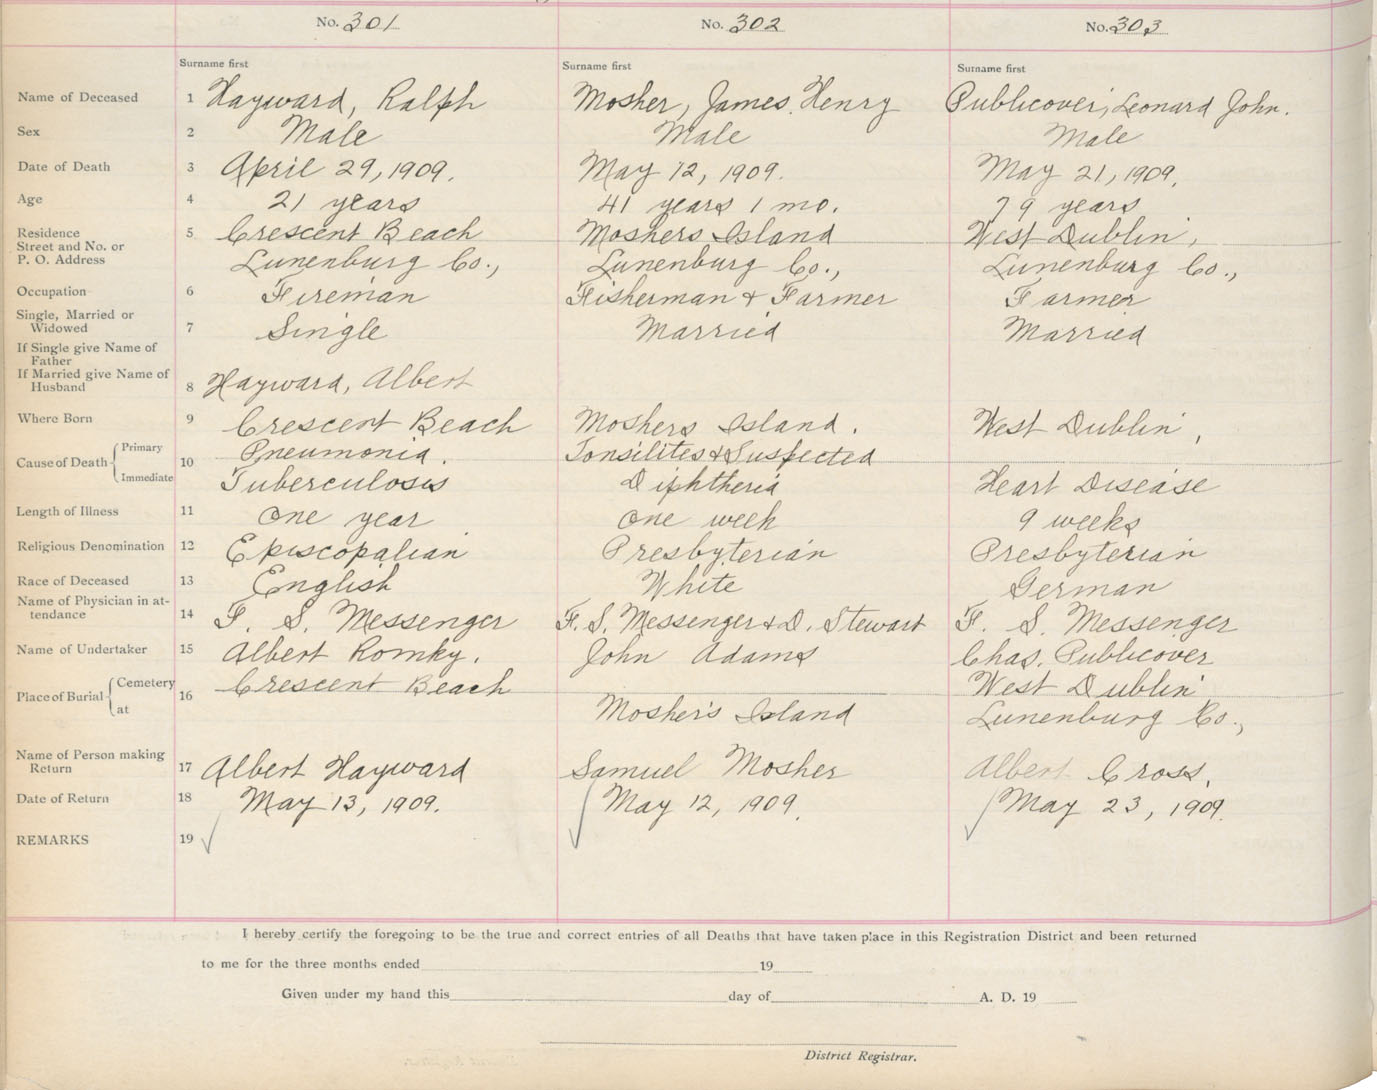 No. 301 No. 302 No. 303
Surname first Surname first Surname first
Name of Deceased 1 Hayward, Ralph Mosher, James Henry Publicover, Leonard John.
Sex 2 Male Male Male
Date of Death 3 April 29, 1909. May 12, 1909. May 21, 1909.
Age 4 21 years 41 years 1 mo. 79 years
Residence 5 Crescent Beach Moshers Island West Dublin,
Street and No. or
P. O. Address Lunenburg Co., Lunenburg Co., Lunenburg Co.,
Occupation 6 Fireman Fisherman & Farmer Farmer
Single, Married or
Widowed 7 Single Married Married
If Single give Name of
Father
If Married give Name of
Husband 8 Hayward, Albert
Where Born 9 Crescent Beach Moshers Island. West Dublin,
Cause of Death Primary 10 Pneumonia. Tonsilites & Suspected
Immediate Tuberculosis Diphtheria Heart Disease
Length of Illness 11 One year One week 9 weeks
Religious Denomination 12 Episcopalian Presbyterian Presbyterian
Race of Deceased 13 English White German
Name of Physician in at-
tendance 14 F. S. Messenger F. S. Messenger & D. Stewart F. S. Messenger
Name of Undertaker 15 Albert Romky. John Adams Chas. Publicover
Place of Burial Cemetery 16 Crescent Beach West Dublin
at Mosher's Island Lunenburg Co.,
Name of Person making
Return 17 Albert Hayward Samuel Mosher Albert Cross,
Date of Return 18 May 13, 1909. May 12, 1909. May 23, 1909.
REMARKS 19
I hereby certify the foregoing to be the true and correct entries of all Deaths that have taken place in this Registration District and been returned
to me for the three months ended 19
Given under my hand this day of A. D. 19
District Registrar.